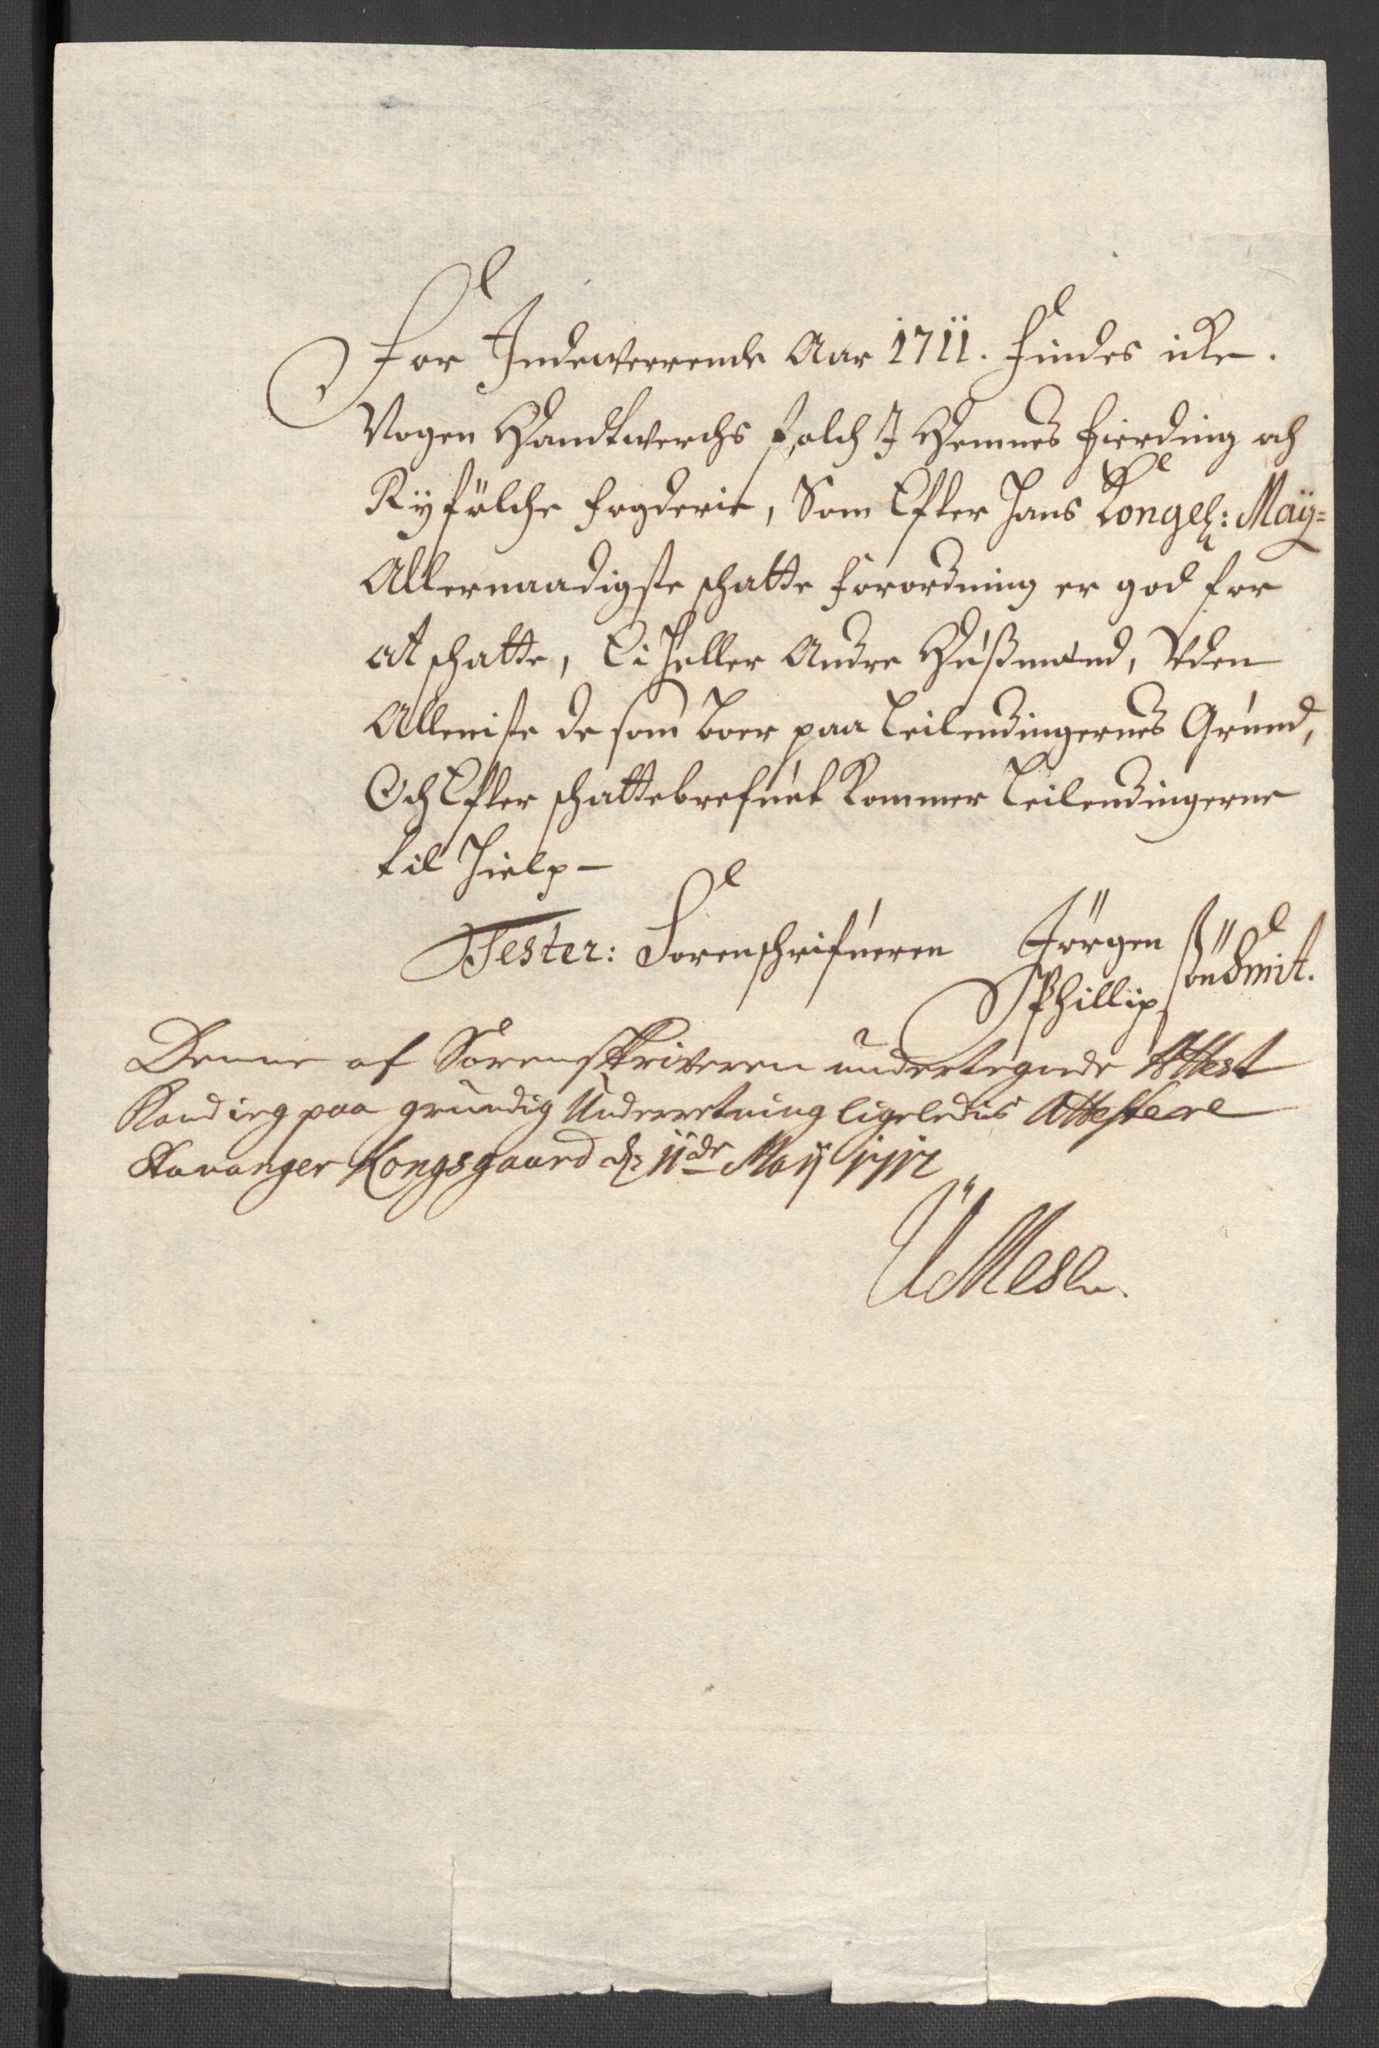 For Indewerrende Aar 1711. findes icke.
Nogen Handtwerchs folch J Hemnes fierding och
Ryfölche fogderie, Som Efter Hans Kongel: Maÿ=
Allernaadigste schatte forordning er god for
at schatte, Ei heller Andre Hußmænd, Uden
Alleniste de som boer paa Leilendingernes Grund,
Och Efter schattebrefuet kommer Leilendingerne
til Hielp -
Tester: Sorenschrifueren Jörgen
Phillip, sön Smit.
Denne af Sorenskriveren undertegnede Attest
Kand ieg paa grundig Underretning ligeledis Attestere
Stavanger Kongsgaard d. 11de Maÿ 1712